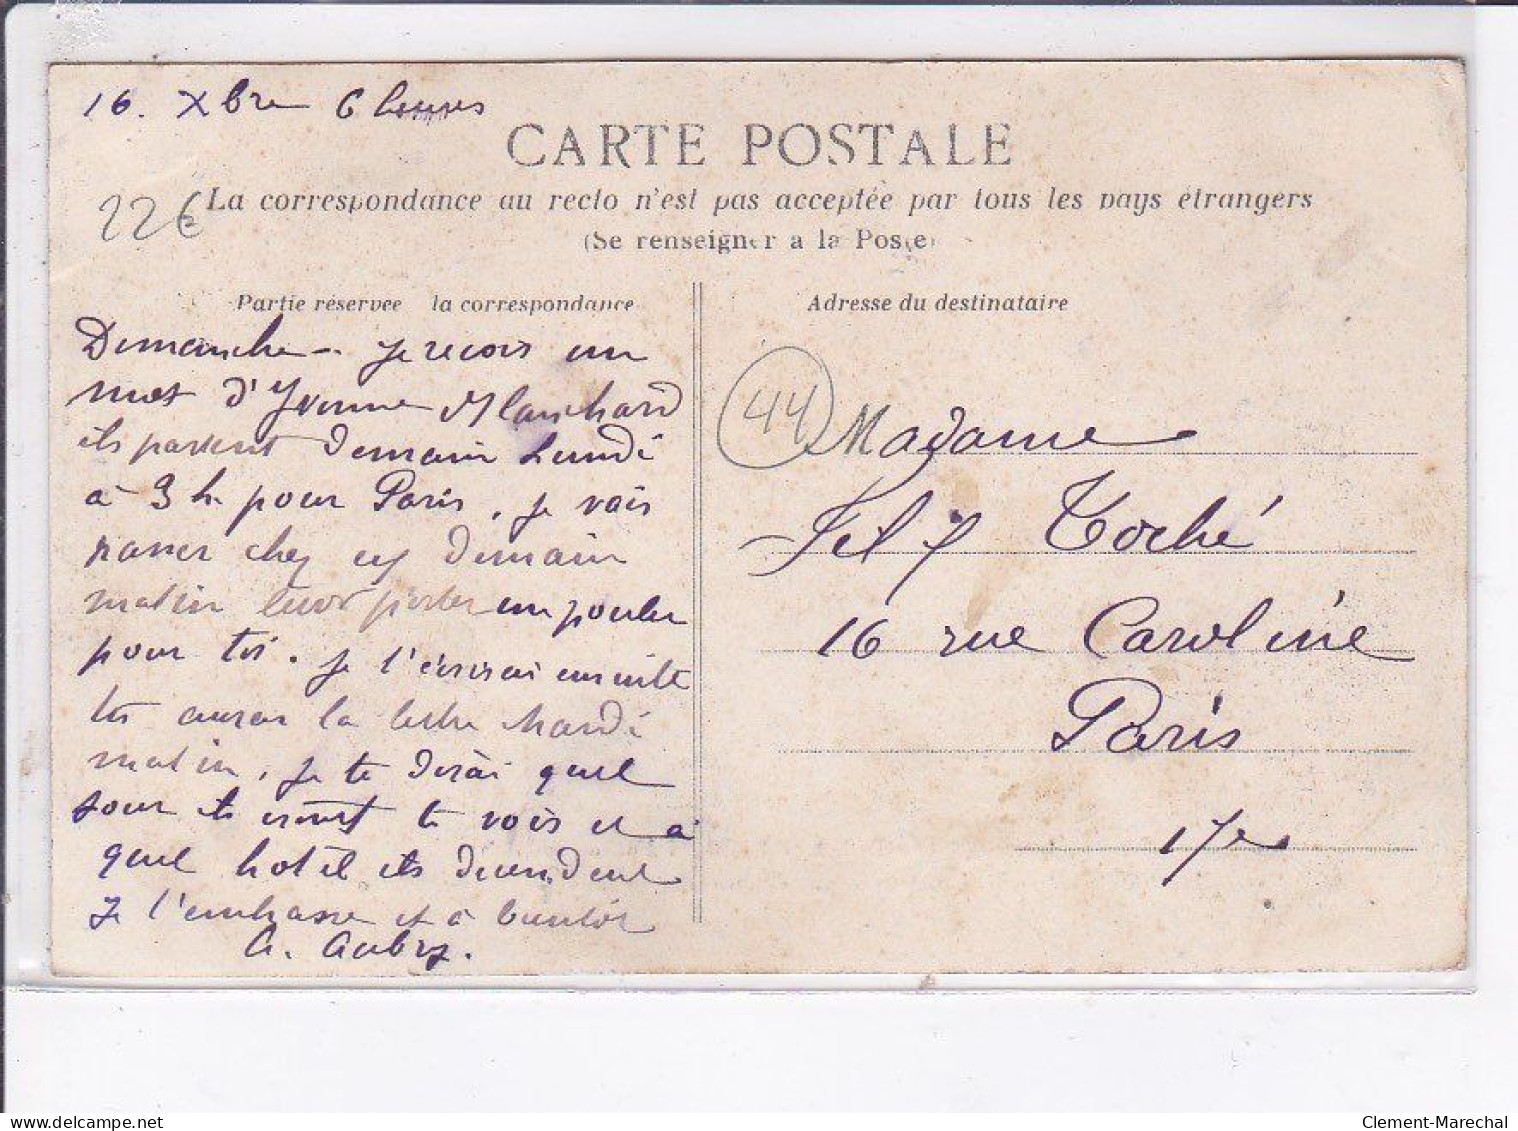 16. Xbre 6 heures
CARTE POSTALE
22€
La correspondance au recto n'est pas acceptée par tous les pays étrangers
(Se renseigner a la Poste)
Partie réservée la correspondance
Dimanche - je recois un
mot d'Yvonne Blanchard
ils partent demain Lundi
à 3 h pour Paris, je vais
passer chez eux demain
matin leur porter un poulet
pour toi. je t'écrirai ensuite
tu auras la lettre Mardi
matin, je te dirai quel
jour ils iront te voir et à
quel hotel ils descendent
je t'embrasse et à bientôt
A. Aubry.
Adresse du destinataire
44
Madame
Toché
16 rue Caroline
Paris
17e
delcampe.net
Clement-Marechal